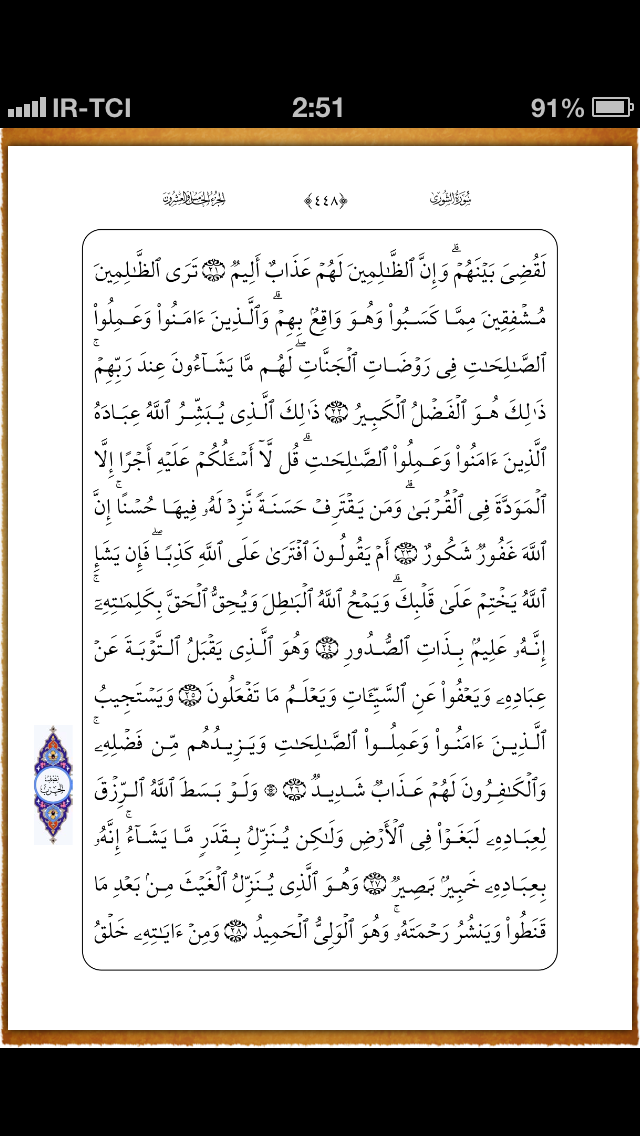 IR-TCI 2:51 91%
سُورَةُ الشُّورَىٰ ﴿٤٤٨﴾ الجزء الخامس والعشرون
لَقُضِيَ بَيْنَهُمْ ۗ وَإِنَّ ٱلظَّٰلِمِينَ لَهُمْ عَذَابٌ أَلِيمٌ ٢١ تَرَى ٱلظَّٰلِمِينَ
مُشْفِقِينَ مِمَّا كَسَبُوا۟ وَهُوَ وَاقِعٌۢ بِهِمْ ۗ وَٱلَّذِينَ ءَامَنُوا۟ وَعَمِلُوا۟
ٱلصَّٰلِحَٰتِ فِى رَوْضَاتِ ٱلْجَنَّاتِ ۖ لَهُم مَّا يَشَآءُونَ عِندَ رَبِّهِمْ ۚ
ذَٰلِكَ هُوَ ٱلْفَضْلُ ٱلْكَبِيرُ ٢٢ ذَٰلِكَ ٱلَّذِى يُبَشِّرُ ٱللَّهُ عِبَادَهُ
ٱلَّذِينَ ءَامَنُوا۟ وَعَمِلُوا۟ ٱلصَّٰلِحَٰتِ ۗ قُل لَّآ أَسْـَٔلُكُمْ عَلَيْهِ أَجْرًا إِلَّا
ٱلْمَوَدَّةَ فِى ٱلْقُرْبَىٰ ۗ وَمَن يَقْتَرِفْ حَسَنَةً نَّزِدْ لَهُۥ فِيهَا حُسْنًا ۚ إِنَّ
ٱللَّهَ غَفُورٌ شَكُورٌ ٢٣ أَمْ يَقُولُونَ ٱفْتَرَىٰ عَلَى ٱللَّهِ كَذِبًا ۖ فَإِن يَشَإِ
ٱللَّهُ يَخْتِمْ عَلَىٰ قَلْبِكَ ۗ وَيَمْحُ ٱللَّهُ ٱلْبَٰطِلَ وَيُحِقُّ ٱلْحَقَّ بِكَلِمَٰتِهِۦٓ ۚ
إِنَّهُۥ عَلِيمٌۢ بِذَاتِ ٱلصُّدُورِ ٢٤ وَهُوَ ٱلَّذِى يَقْبَلُ ٱلتَّوْبَةَ عَنْ
عِبَادِهِۦ وَيَعْفُوا۟ عَنِ ٱلسَّيِّـَٔاتِ وَيَعْلَمُ مَا تَفْعَلُونَ ٢٥ وَيَسْتَجِيبُ
ٱلَّذِينَ ءَامَنُوا۟ وَعَمِلُوا۟ ٱلصَّٰلِحَٰتِ وَيَزِيدُهُم مِّن فَضْلِهِۦ ۚ
وَٱلْكَٰفِرُونَ لَهُمْ عَذَابٌ شَدِيدٌ ٢٦ ۞ وَلَوْ بَسَطَ ٱللَّهُ ٱلرِّزْقَ
لِعِبَادِهِۦ لَبَغَوْا۟ فِى ٱلْأَرْضِ وَلَٰكِن يُنَزِّلُ بِقَدَرٍ مَّا يَشَآءُ ۚ إِنَّهُۥ
بِعِبَادِهِۦ خَبِيرٌۢ بَصِيرٌ ٢٧ وَهُوَ ٱلَّذِى يُنَزِّلُ ٱلْغَيْثَ مِنۢ بَعْدِ مَا
قَنَطُوا۟ وَيَنشُرُ رَحْمَتَهُۥ ۚ وَهُوَ ٱلْوَلِىُّ ٱلْحَمِيدُ ٢٨ وَمِنْ ءَايَٰتِهِۦ خَلْقُ